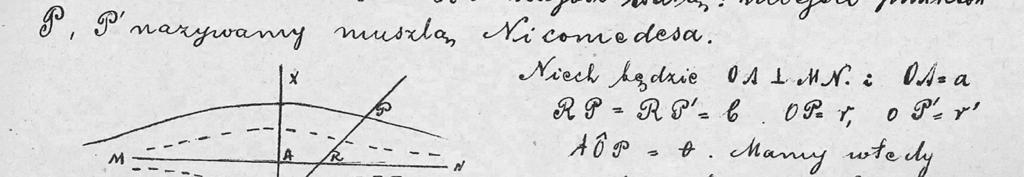 P, P' nazywamy muszlą Nicomedesa.
X
P
M A R N
Niech będzie OA ⊥ MN. i OA = a
RP = RP' = b OP = r, OP' = r'
AÔP = θ. Mamy wtedy